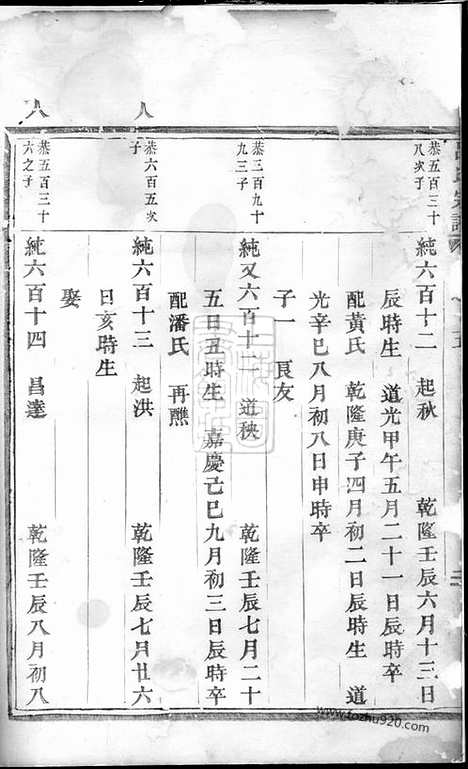 恭五百三十
八次子
純六百十二 起秋 乾隆壬辰六月十三日
辰時生 道光甲午五月二十一日辰時卒
配黃氏 乾隆庚子四月初二日辰時生 道
光辛巳八月初八日申時卒
子一 艮友
恭三百九十
九三子
純又六百十二 道秧 乾隆壬辰七月二十
五日丑時生 嘉慶己巳九月初三日辰時卒
配潘氏 再醮
恭六百五次
子
純六百十三 起洪 乾隆壬辰七月廿六
日亥時生
娶
恭五百三十
六之子
純六百十四 昌達 乾隆壬辰八月初八
www.tozhu920.com